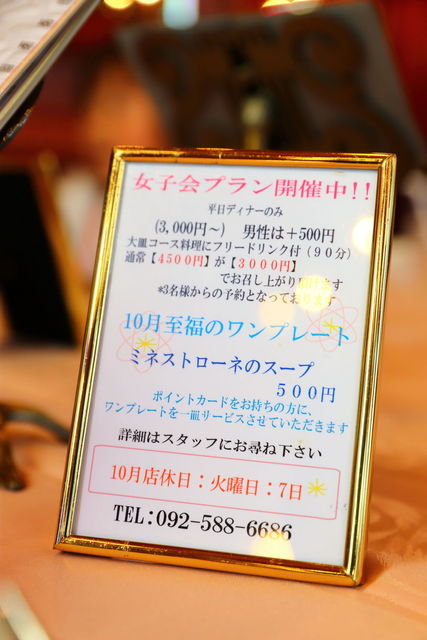 女子会プラン開催中!!
平日ディナーのみ
(3,000円~) 男性は+500円
大皿コース料理にフリードリンク付(90分)
通常【4500円】が【3000円】
でお召し上がり頂けます
*3名様からの予約となっております
10月至福のワンプレート
ミネストローネのスープ
500円
ポイントカードをお持ちの方に、
ワンプレートを一皿サービスさせていただきます
詳細はスタッフにお尋ね下さい
10月店休日:火曜日:7日
TEL:092-588-6686